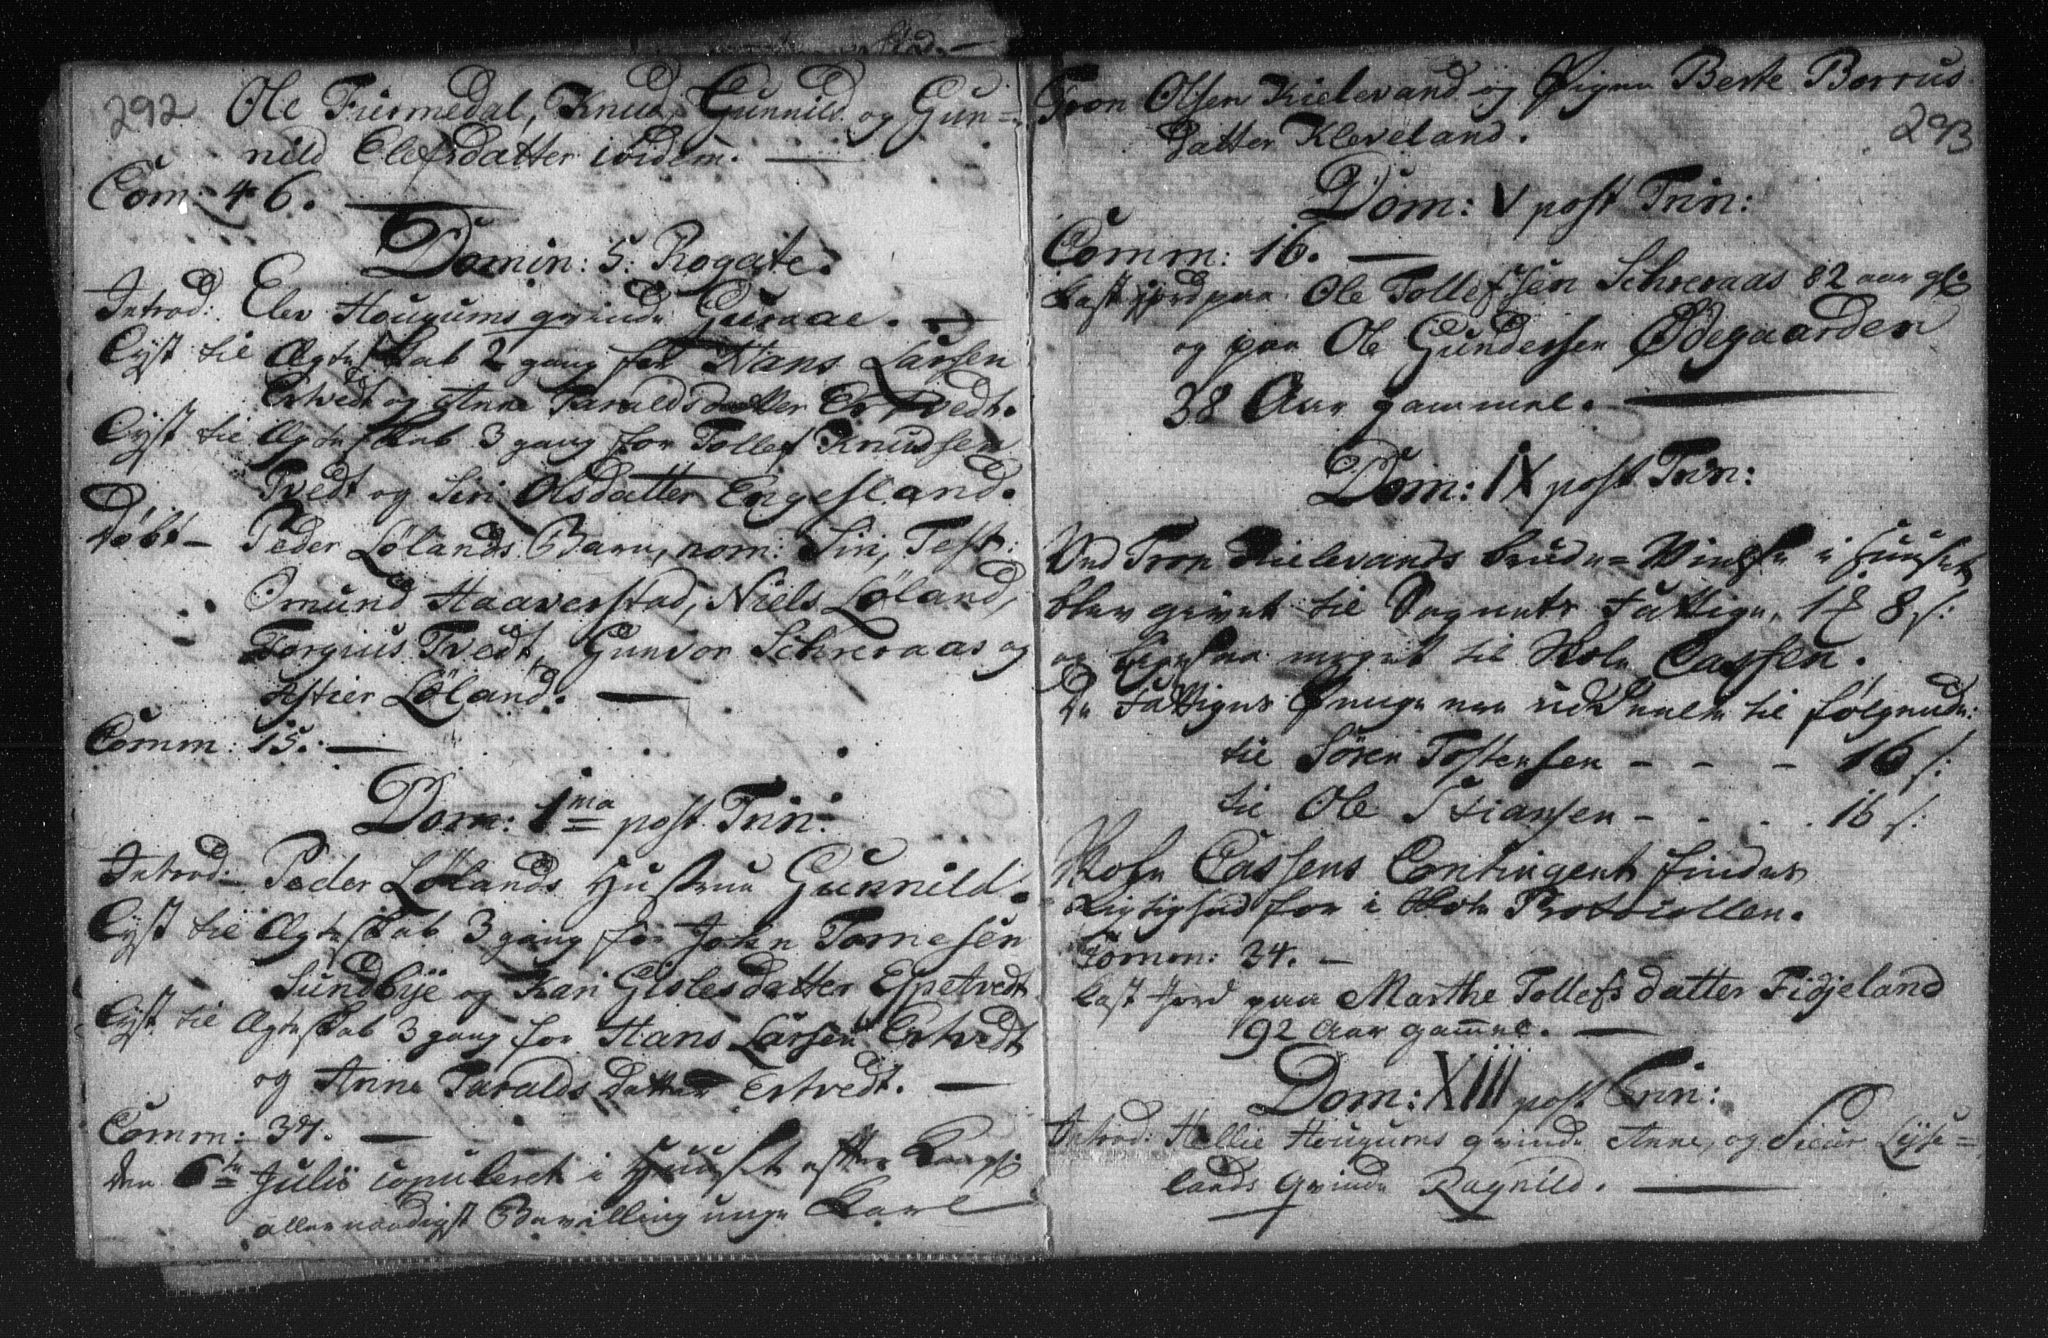 292
Ole Fiermedal, Knud, Gunnild og Gun=
nild Elefsdatter ividem.
Com: 46.
Domin: 5: Rogate.
Introd: Elev Hougums qvinde Guroae.
Lyst til Ægteskab 2 gang for Hans Larsen
Ertvedt og Anne Taraldsdatter Ertvedt.
Lyst til Ægteskab 3 gang for Tollef Knudsen
Tvedt og Siri Olsdatter Engesland.
Døbt – Peder Lølands Barn, nom: Siri, Test:
Omund Haaverstad, Niels Løland,
Torgius Tvedt, Gunvor Schreraas og
Løland.
Comm: 15.
Dom: 1ma post Trin:
Introd: Peder Lølands Hustrue Gunnild.
Lyst til Ægteskab 3 gang for John Tornesen
Sundbye og Kari Gislesdatter Espetvedt
Lyst til Ægteskab 3 gang for Hans Larsen Ertvedt
og Anne Taralds Datter Ertvedt.
Comm: 37.
den 6te Julii copuleret i Huuset efter Kongl:
allernaadigst Bevilling unge Karl
Troon Olsen Kielevand og Pigen Berte Borrus
293
Datter Kleveland.
Dom: V post Trin:
Comm: 16.
Kast jord paa Ole Tollefssen Schreraas 82 aar gl:
og paa Ole Gundersen Ødegaarden
38 Aar gammel.
Dom: IX post Trin:
Ved Tron Kielevands brude= Vielse i Huuset
blev givet til Sognets Fattige, 8 s:
og ligesaa meget til Skole Cassen.
De Fattiges Penge ere uddeelte til følgende:
til Sören Tostensen – – – 16 s:
til Ole Stiansen – – – 16 s:
Skole Cassens Contingent findes
Rigtighed for i Skole Protocollen.
Comm: 34. –
Kast Jord paa Marthe Tollefsdatter Fidjeland
92 Aar gammel.
Dom: XIII post Trin:
Introd: Hellie Hougums qvinde Anne, og Siur Lyse=
lands Qvinde Ragnild.